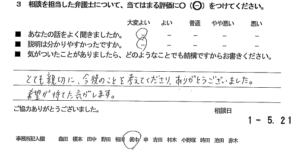 3 相談を担当した弁護士について、当てはまる評価に○(⊖)をつけてください。
大変よい よい 普通 やや悪い 悪い
■ あなたの話をよく聞きましたか。
■ 説明は分かりやすかったですか。
■ 気がついたことがありましたら、どのようなことでも結構ですからお書きください。
とても親切に、今後のことを考えてくださり、ありがとうございました。
希望が持てた気がします。
ご協力ありがとうございました。 相談日
1-5.21
事務所記入欄 森田 榎本 田中 野田